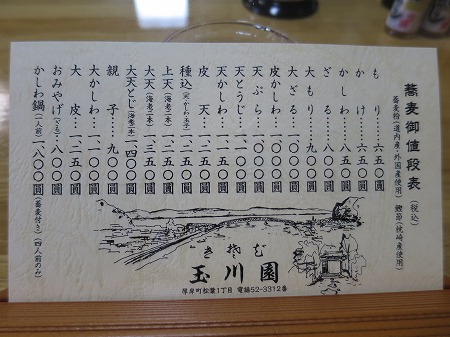 蕎麦御値段表(税込)
蕎麦粉(道内産・外国産使用) 鰹節(枕崎産使用)
もり……六五〇圓
かけ……六五〇圓
かしわ……八五〇圓
ざる……八〇〇圓
大もり……九〇〇圓
大ざる……一、〇〇〇圓
皮かしわ……一、〇〇〇圓
天ぷら……一、〇〇〇圓
天とうじ……一、一〇〇圓
天かしわ……一、二五〇圓
皮天……一、二五〇圓
種込(天・かしわ・玉子)一、二五〇圓
上天(海老二本)一、三五〇圓
大天(海老二本)一、三五〇圓
大天とじ(海老二本)一、四〇〇圓
親子……九〇〇圓
大かしわ……一、一五〇圓
大皮……一、二五〇圓
おみやげ……八〇〇圓
かしわ鍋(一人前)一、八〇〇圓(蕎麦付き)(四人前のみ)
玉川園
厚岸町松葉1丁目 電話52-3312番